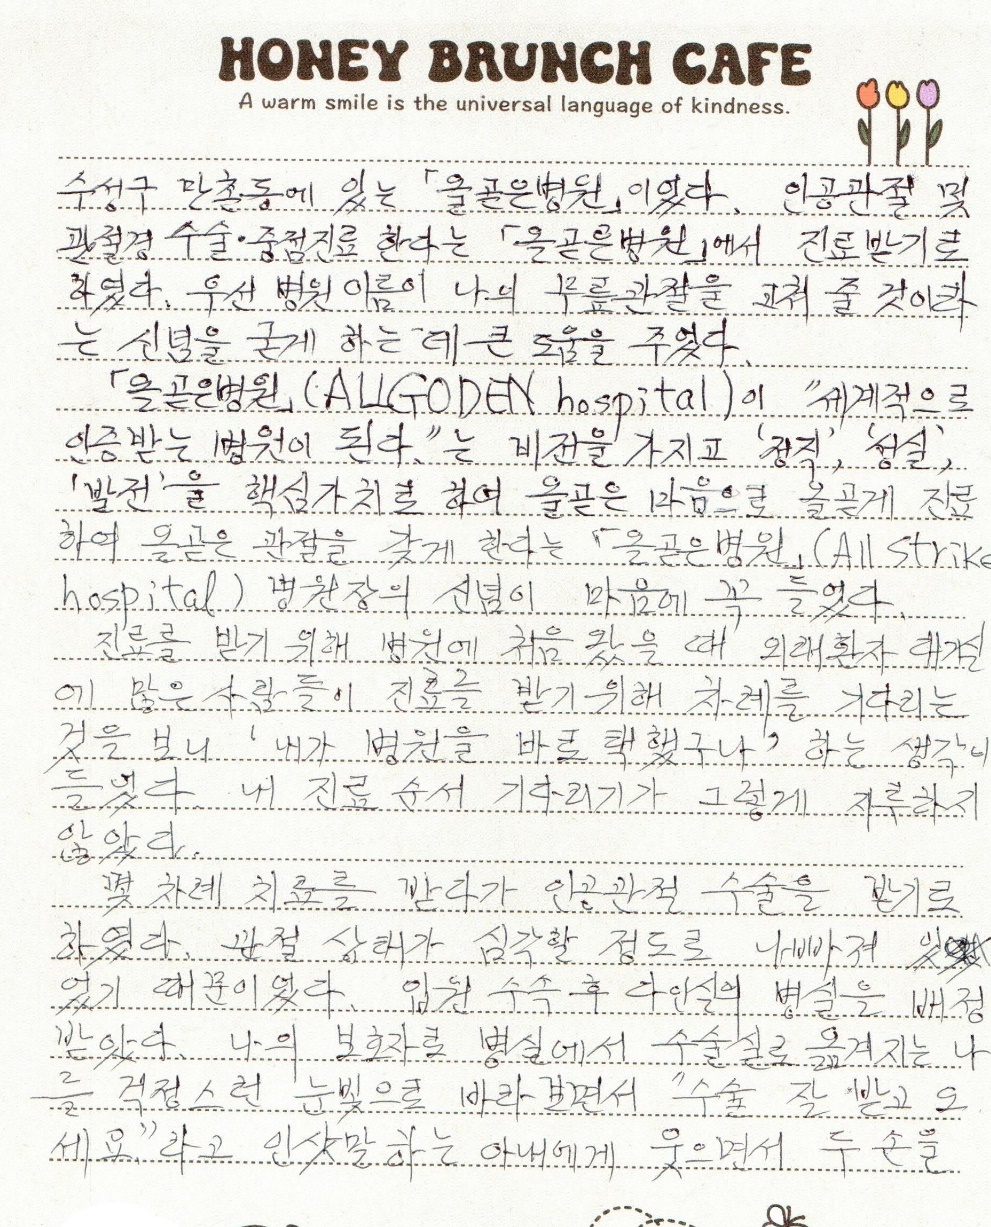 HONEY BRUNCH CAFE
A warm smile is the universal language of kindness.
수성구 만촌동에 있는 「올곧은병원」이었다. 인공관절 및
관절경 수술·중점진료 한다는 「올곧은병원」에서 진료받기로
하였다. 우선 병원 이름이 나의 무릎관절을 고쳐 줄 것이라
는 신념을 굳게 하는 데 큰 도움을 주었다.
「올곧은병원」(ALLGODEN hospital)이 "세계적으로
인증받는 병원이 된다."는 비전을 가지고 '정직', '성실',
'발전'을 핵심가치로 하여 올곧은 마음으로 올곧게 진료
하여 올곧은 관절을 갖게 한다는 「올곧은병원」(All Strike
hospital) 병원장의 신념이 마음에 꼭 들었다.
진료를 받기 위해 병원에 처음 왔을 때 외래환자 대기실
에 많은 사람들이 진료를 받기 위해 차례를 기다리는
것을 보니 '내가 병원을 바로 택했구나' 하는 생각이
들었다. 내 진료 순서 기다리기가 그렇게 지루하지
않았다.
몇 차례 치료를 받다가 인공관절 수술을 받기로
하였다. 관절 상태가 심각할 정도로 나빠져 있
었기 때문이었다. 입원 수속 후 다인실의 병실을 배정
받았다. 나의 보호자로 병실에서 수술실로 옮겨지는 나
를 걱정스런 눈빛으로 바라보면서 "수술 잘 받고 오
세요."라고 인삿말 하는 아내에게 웃으면서 두 손을